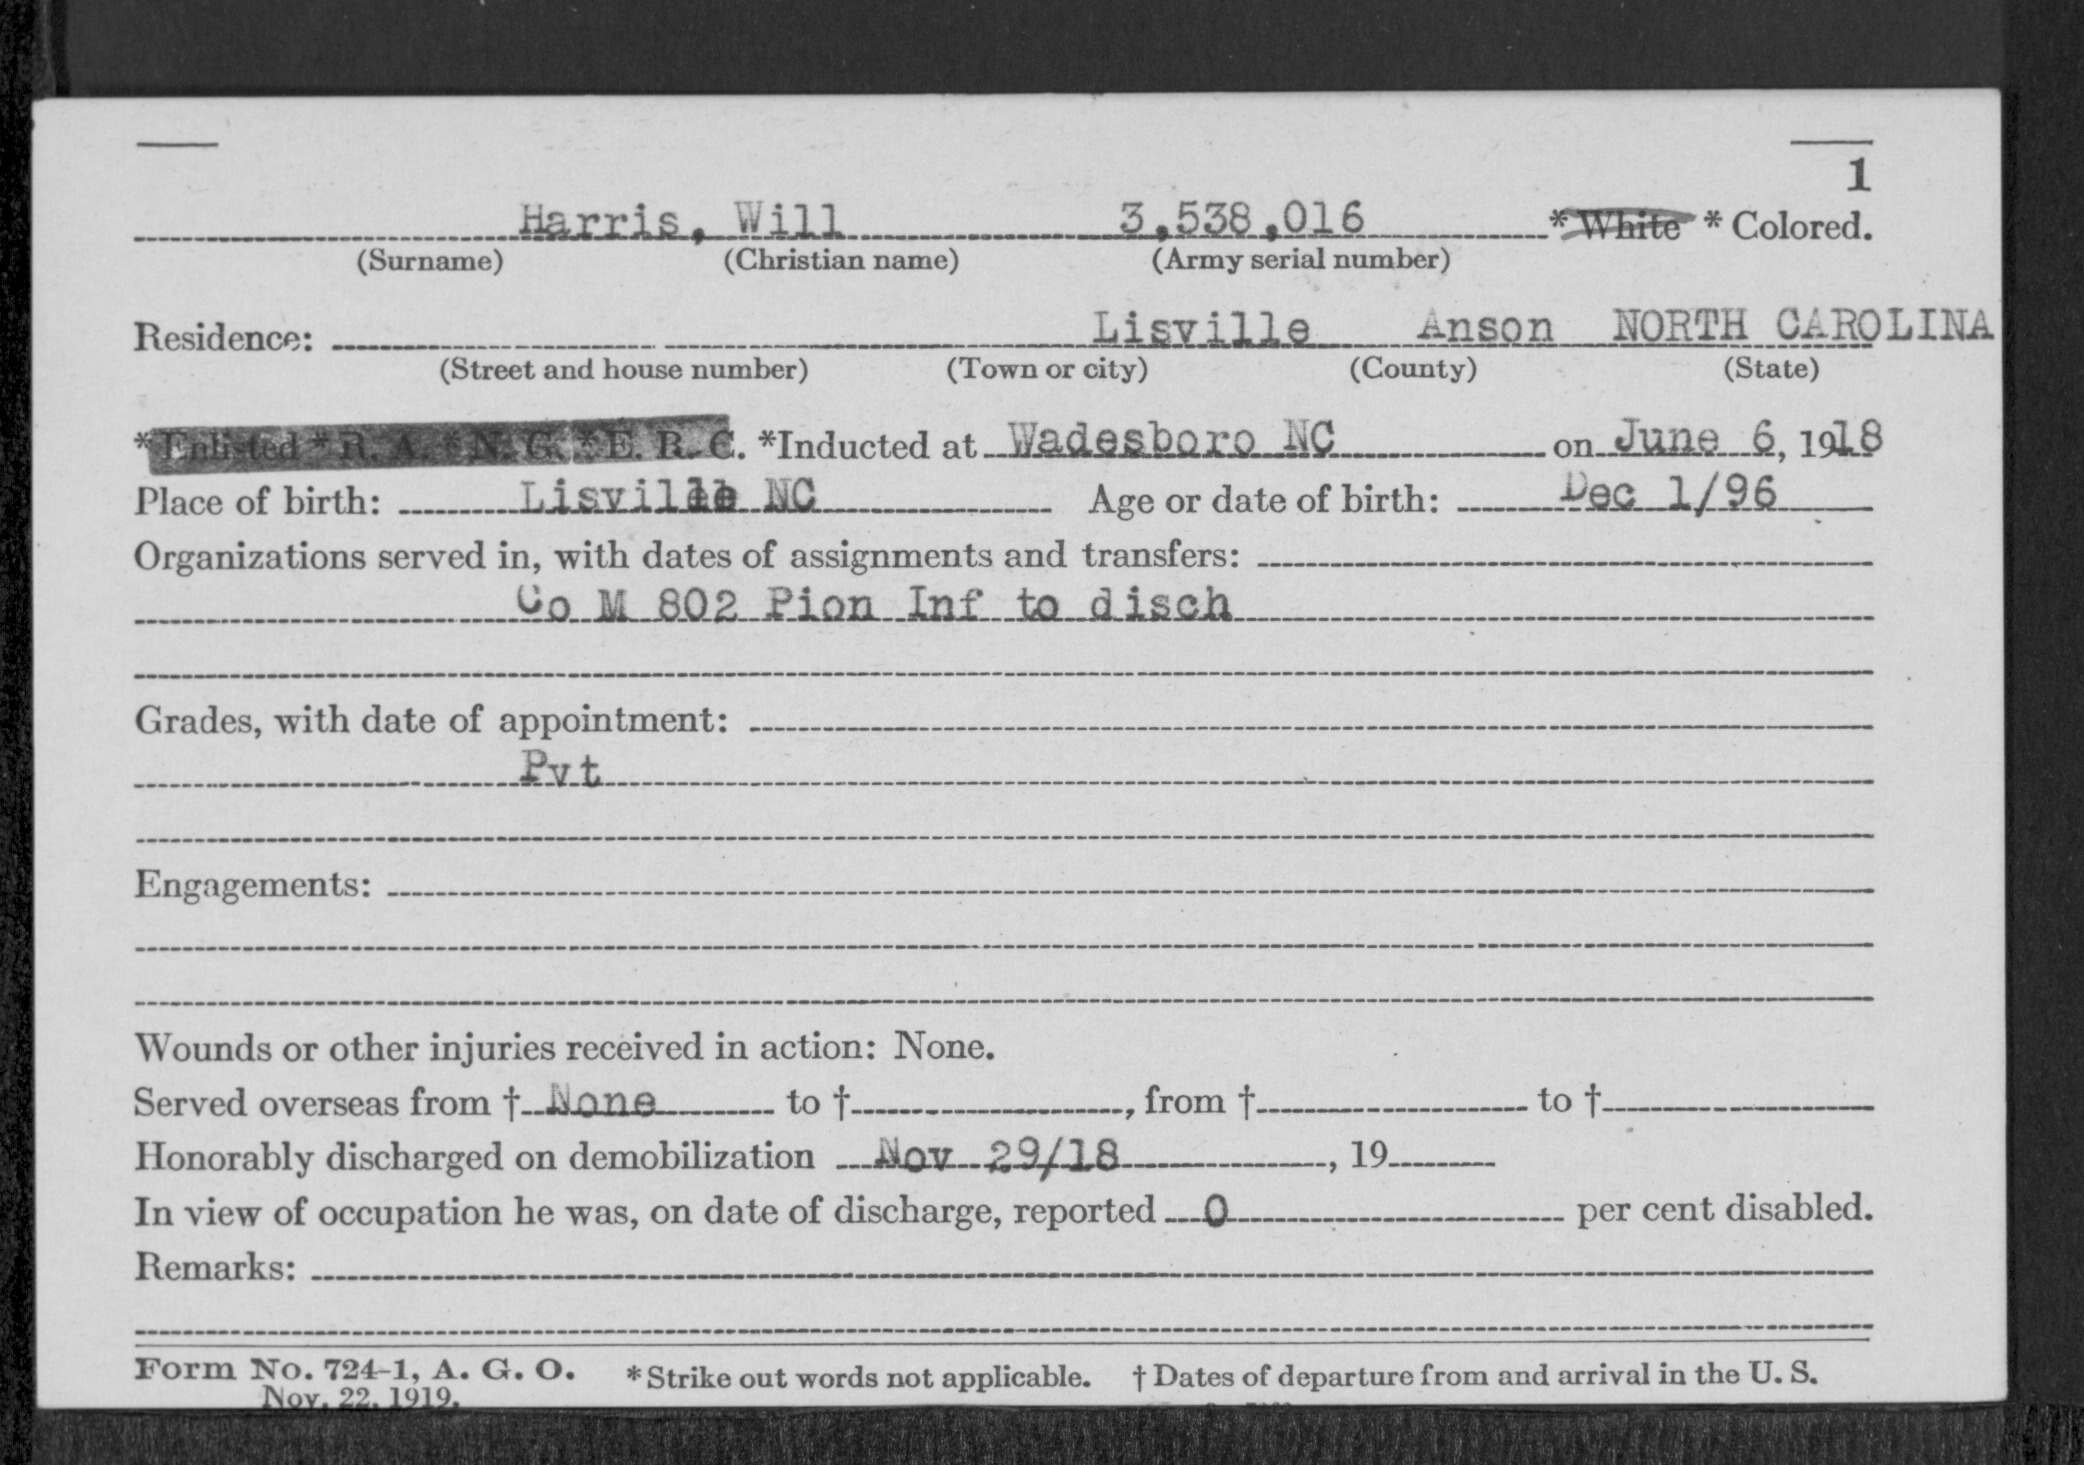 1
Harris, Will 3,538,016 * White * Colored.
(Surname) (Christian name) (Army serial number)
Residence: Lisville Anson NORTH CAROLINA
(Street and house number) (Town or city) (County) (State)
*Enlisted *R. A. *N. G. *E. R. C. *Inducted at Wadesboro NC on June 6, 1918
Place of birth: Lisville NC Age or date of birth: Dec 1/96
Organizations served in, with dates of assignments and transfers:
Co M 802 Pion Inf to disch
Grades, with date of appointment:
Pvt
Engagements:
Wounds or other injuries received in action: None.
Served overseas from † None to †, from † to †
Honorably discharged on demobilization Nov 29/18, 19
In view of occupation he was, on date of discharge, reported 0 per cent disabled.
Remarks:
Form No. 724-1, A. G. O. *Strike out words not applicable. † Dates of departure from and arrival in the U. S.
Nov. 22, 1919.